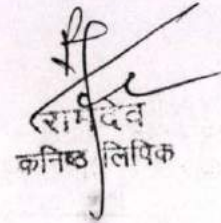 रामदेव
कनिष्ठ लिपिक